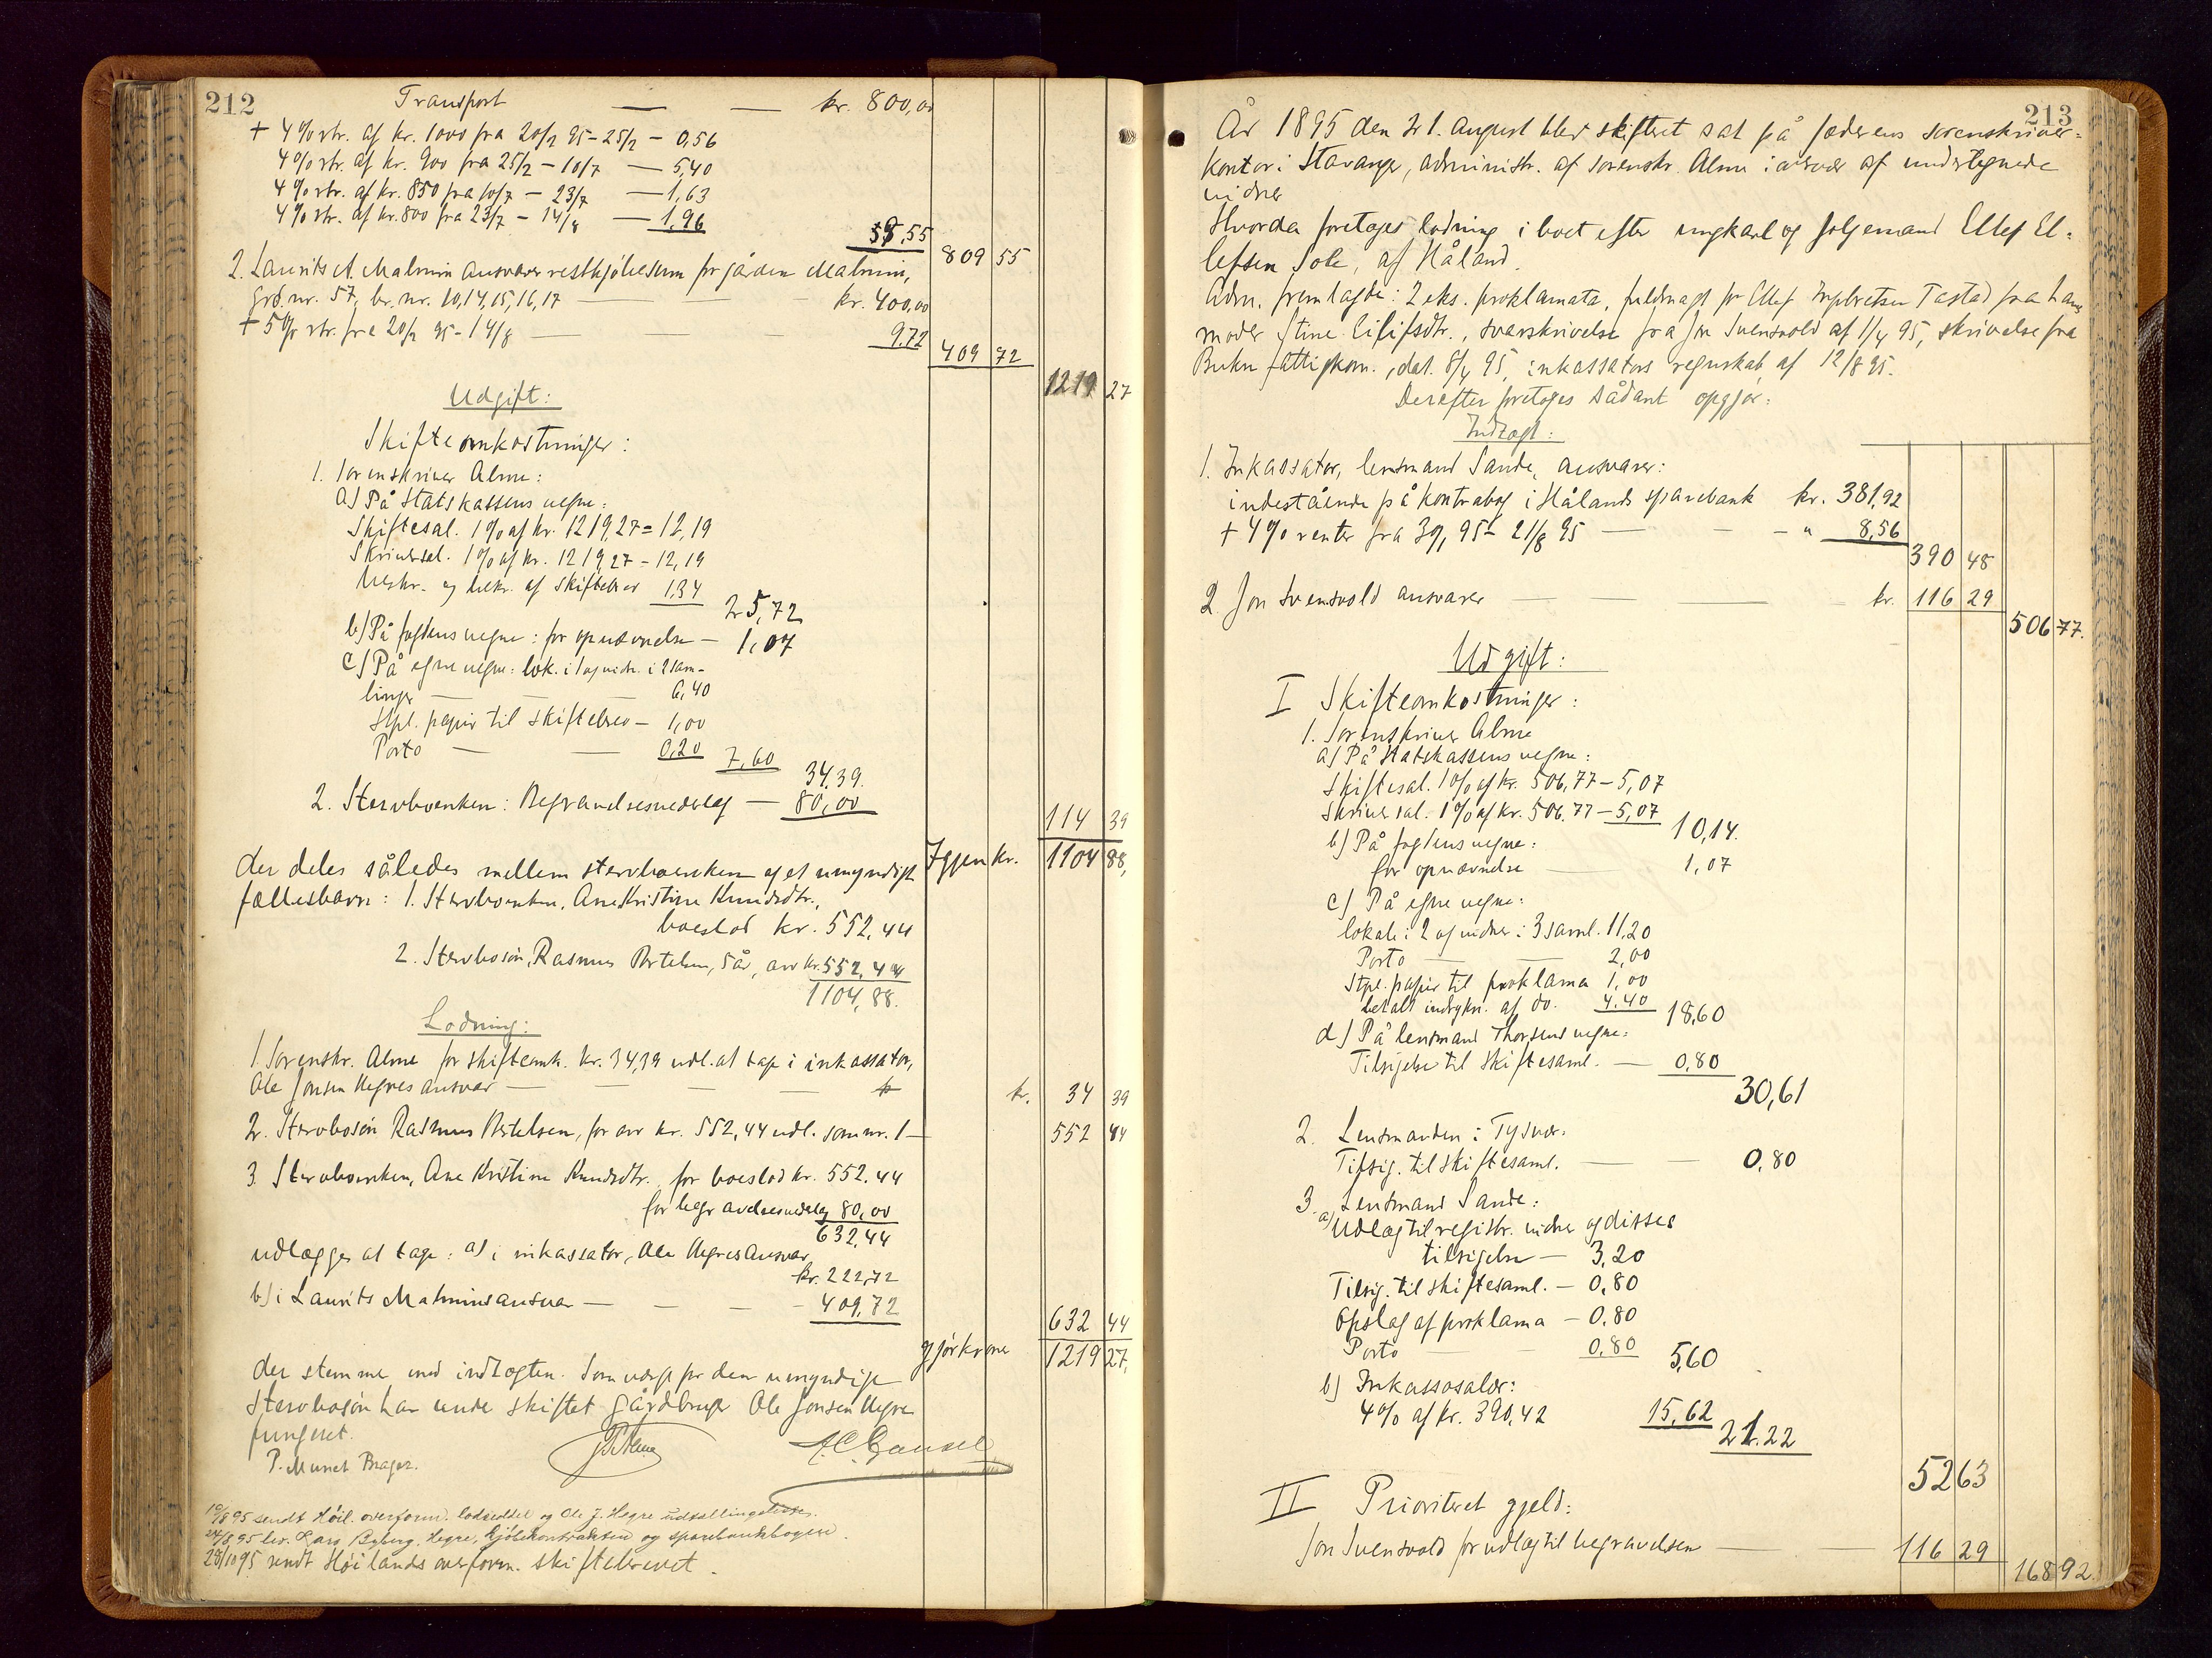 212
Transport — — kr. 800,00
+ 4% str. af kr. 1000 fra 20/2 95 – 25/2 – 0,56
4% str. af kr. 900 fra 25/2 – 10/7 — 5,40
4% str. af kr. 850 fra 10/7 – 23/7 — 1,63
4% str. af kr. 800 fra 23/7 – 14/8 — 1,96
9,55
809 55
2. Laurits A. Malmin ansvarer restkjøbesum for gården Malmin,
grd. nr. 57, br. nr. 10,14,15,16,17 — — kr. 400,00
+ 5% str. fra 20/2 95 – 14/8 — — 9.72
409 72
1219 27
Udgift:
Skifteomkostninger:
1. Sorenskriver Alme:
a) På Statskassens vegne:
Skiftesal. 1% af kr. 1219,27 = 12,19
Skriversal. 1% af kr. 1219,27 – 12,19
beskr. og bekr. af skiftebrev 1,34
25,72
b) På fogdens vegne: for opnævnelse — 1,07
c) På egne vegne: lok. i 1 og vidn. i 2 sam-
linger — — 6,40
Stpl. papir til skiftebrev – 1,00
Porto — — 0,20 7,60
34,39.
2. Stervboenken: Begravelsesvederlag — 80,00
114 39
Igjen kr. 1104 88,
der deles således mellem stervboenken og et umyndigt
fællesbarn: 1. Stervboenken, Ane Kristine Knudsdtr.,
boeslod kr. 552,44
2. Stervbosøn, Rasmus Bertelsen, 5 år, arv kr. 552,44
1104,88.
Lodning:
1. Sorenskr. Alme for skifteomk. kr. 34,39 udl. at tage i inkassator,
Ole Jonsen Hegres ansvar — — — kr. 34 39
2. Stervbosøn Rasmus Bertelsen, for arv kr. 552,44 udl. som nr. 1 — 552 44
3. Stervboenken, Ane Kristine Knudsdtr., for boeslod kr. 552,44
for begravelsesvederlag 80,00
632,44
udlægges at tage: a) i inkassator, Ole Hegres Ansvar
kr. 222,72
b) i Laurits Malmins ansvar — — — 409,72
632 44
gjør kroner 1219 27,
der stemmer med indtægten. Som værge for den umyndige
Stervbosøn har under skiftet gårdbruger Ole Jonsen Hegre
fungeret.
P. Alme A. C. Gausel
P. Musiet Brager.
19/8 95 sendt Høil. overform. lodseddel og Ole J. Hegre udstellingsliste.
24/8 95 lev. Lars Byberg, Hegre, kjøbekontrakten og sparebankbogen.
28/10 95 sendt Høilands overform. skiftebrevet.
213
År 1895 den 21. August blev skifteret sat på Jæderens sorenskriver-
kontor i Stavanger, administr. af sorenskr. Alme i nærvær af undertegnede
vidner
Hvorda foretages lodning i boet efter ungkarl og følgemand Ellef El-
lefsen Sole, af Håland.
Adm. fremlagde: 2 eks. proklamata, fuldmagt for Ellef Ingbretsen Tastad fra hans
moder Stine Eilifsdtr., svarskrivelse fra Jon Svensvold af 1/4 95, skrivelse fra
Bukn fattigkom., dat. 8/4 95, inkassators regnskab af 12/8 95.
Derefter foretoges sådant opgjør:
Indtægt:
1. Inkassator, lensmand Sande, ansvarer:
indestående på kontrabog i Hålands sparebank kr. 381,92
+ 4% renter fra 30/1 95 – 21/8 95 — — — " 8,56
390 48
2. Jon Svensvold ansvarer — — — kr. 116 29
506 77.
Udgift:
I Skifteomkostninger:
1. Sorenskriver Alme
a) På Statskassens vegne:
Skiftesal. 1% af kr. 506,77 – 5,07
Skriversal. 1% af kr. 506,77 – 5,07
10,14.
b) På fogdens vegne:
for opnævnelse — 1,07
c) På egne vegne:
lokale i 2 og vidner i 3 saml. 11,20
Porto — — 2,00
Stpl. papir til proklama 1,00
betalt indrykn. af do. 4.40 18,60
d) På lensmand Thorsens vegne:
Tilsigelse til skiftesaml. — 0,80
30,61
2. Lensmanden i Tysvær:
Tilsig. til skiftesaml. — — 0,80
3. Lensmand Sande:
a) Udlæg til registr. vidner og disses
tilsigelse — 3,20
Tilsig. til skiftesaml. – 0,80
Opslag af proklama – 0,80
Porto — 0,80 5,60
b) Inkassosalær:
4% af kr. 390,42 15,62
21.22
52 63
II Prioriteret gjeld:
Jon Svensvold for udlæg til begravelsen — — 116 29
168 92.